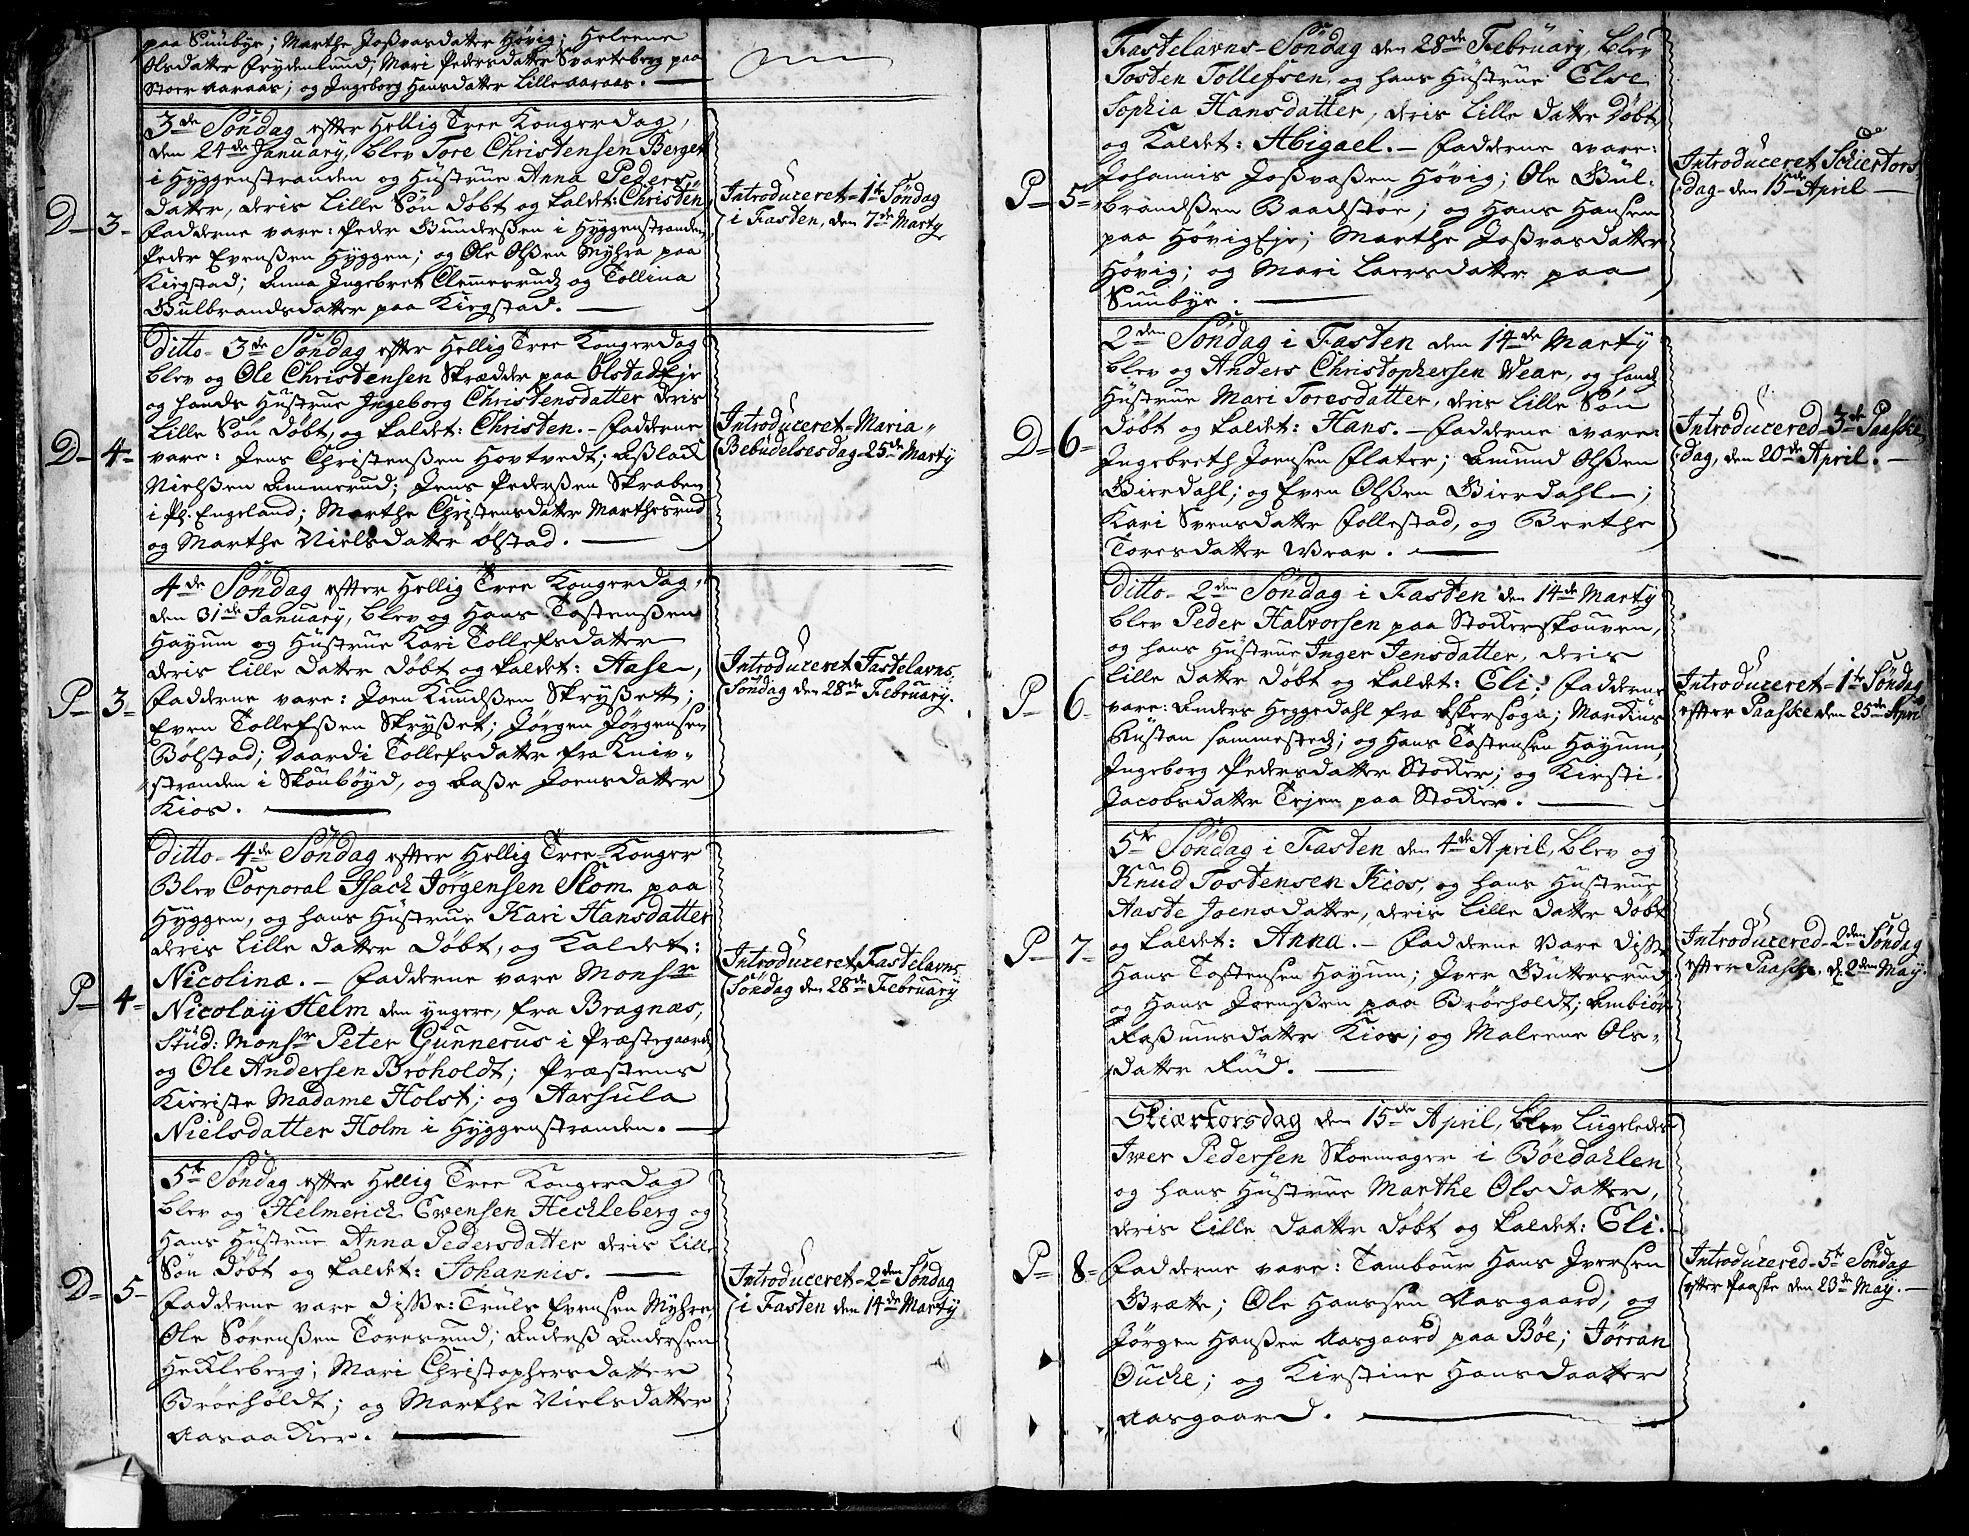 paa Sundbye; Marthe Joßvasdatter Høvig; Heleene
Olsdatter Frydenlund; Mari Pedersdatter Svarteberg paa
Stoer aaraas; og Ingeborg Hansdatter Lilleaaraas.
D. 3.
3de Søndag efter Hellig Tree Kongerdag,
den 24de January, blev Tore Christensen Berget
i Hyggenstranden og Hustrue Anna Peders
datter, deris lille Søn døbt og kaldet: Christen
Fadderne vare: Peder Gundersßen i Hyggenstranden,
Peder Evensßen Hyggen; og Ole Olsßen Myhra paa
Kiøgstad; Anna Ingebret Clemmesrudz og Tollina
Gulbrandsdatter paa Kiøgstad.
Introduceret 1te Søndag
i Fasten, den 7de Marty
D. 4.
Ditto 3de Søndag efter Hellig Tree Kongerdag
blev og Ole Christensen Skrædder paa Ølstadeje
og hands Hustrue Ingeborg Christensdatter deris
lille Søn døbt, og kaldet: Christen. Fadderne
vare: Jens Christensßen Hovtvedt; Aßlack
Nielsßen Ammerud; Jens Pedersßen Skraben
i Pl. Engeland; Marthe Christensdatter Marthesrud
og Marthe Nielsdatter Ølstad.
Introduceret Maria
Bebudelsesdag 25de Marty
P. 3.
4de Søndag efter Hellig Tree Kongerdag,
den 31de January, blev og Hans Tostensßen
Hayum og Hustrue Kari Tollefsdatter
deris lille datter døbt og kaldet: Aase,
Fadderne vare: Joen Knudsßen Skryßett;
Even Tollefsßen Skryßet; Jørgen Jørgensen
Bølstad; Gaardi Tollefsdatter fra Kniv-
stranden i Skoubøyd, og Aaße Joensdatter
Kios.
Introduceret Fastelavns
Søndag den 28de February.
P. 4.
Ditto 4de Søndag efter Hellig Tree Konger
Blev Corporal Isach Jørgensen Stom paa
Hyggen, og hans Hustrue Kari Hansdatter
deris lille datter døbt, og kaldet:
Nicolinæ. Fadderne vare Monsr
Nicolay Helm den yngere, fra Bragnæs,
Stud: Monsr Peter Gunnerus i Præstegaard
og Ole Andersen Brøholdt; Præstens
Kieriste Madame Holst; og Aarsula
Nielsdatter Holm i Hyggenstranden.
Introduceret Fastelavns
Søndag den 28de February
D. 5.
5te Søndag efter Hellig Tree Kongerdag
blev og Helmerich Evensen Heckleberg og
Hans Hustrue Anna Pedersdatter deris lille
Søn døbt og kaldet: Johannis.
Fadderne vare disße: Truls Evensen Myhre,
Ole Sørensßen Toresrud; Anders Andersen
Heckleberg; Mari Christophersdatter
Brøeholdt; og Marthe Nielsdatter
Aasaaker.
Introduceret 2den Søndag
i Fasten den 14de Marty
P. 5.
Fastelavns Søndag den 28de February, blev
Tosten Tollefsen, og hans Hustrue Else
Sophia Hansdatter, deris lille datter døbt
og kaldet: Abigael. Fadderne vare:
Johannis Joßvaßen Høvig; Ole Gul-
brandsßen Baadstøe; og Hans Hansen
paa Høvigeje; Marthe Joßvasdatter
Høvig; og Mari Laersdatter paa
Sundbye.
Introduceret Schiertors
dag den 15de April
D. 6.
2den Søndag i Fasten den 14de Marty
blev og Anders Christophersen Wear, og hans
Hustrue Mari Toresdatter, deris lille Søn
døbt og kaldet: Hans. Fadderne vare:
Ingebreth Joensen Flater; Amund Olsßen
Gierdahl; og Even Olsßen Gierdahl;
Kari Svensdatter Follestad, og Berthe
Toresdatter Wear.
Introducered 3de Paaske
dag, den 20de April.
P. 6.
Ditto 2den Søndag i Fasten den 14de Marty
blev Peder Halvorsen paa Stockerskouven,
og hans Hustrue Inger Jensdatter, deris
lille datter døbt og kaldet: Eli; Fadderne
vare: Anders Heggedahl fra Askersogn; Markus
Rustan sammestedz; og Hans Tostensen Hayum;
Ingeborg Pedersdatter Stocker; og Kirsti
Jacobsdatter Tejen paa Stocker.
Introduceret 1te Søndag
efter Paaske den 25de April
P. 7.
5te Søndag i Fasten den 4de April, blev og
Knud Tostensen Kios, og hans Hustrue
Aaste Joensdatter, deris lille datter døbt
og kaldet: Anna. Fadderne vare disße
Hans Tostensen Hayum; Iver Guttersrud
og Hans Joensßen paa Brøeholdt; Ambiør
Raßumsdatter Kios; og Maleene Ols-
datter Rud.
Introducered 2den Søndag
efter Paaske, d. 2den May.
P. 8.
Skiærtorsdag den 15de April, blev Ligeledes
Iver Pedersen Skoemager i Bøedahlen
og hans Hustrue Marthe Olsdatter,
deris lille daatter døbt og kaldet: Eli.
Fadderne vare: Tambour Hans Iversen
Brætte; Ole Hanssen Aasgaard; og
Jørgen Hansßen Aasgaard paa Bøe; Jørran
Oucke; og Kirstine Hansdaatter
Aasgaard.
Introducered 5te Søndag
efter Paaske den 23de May.